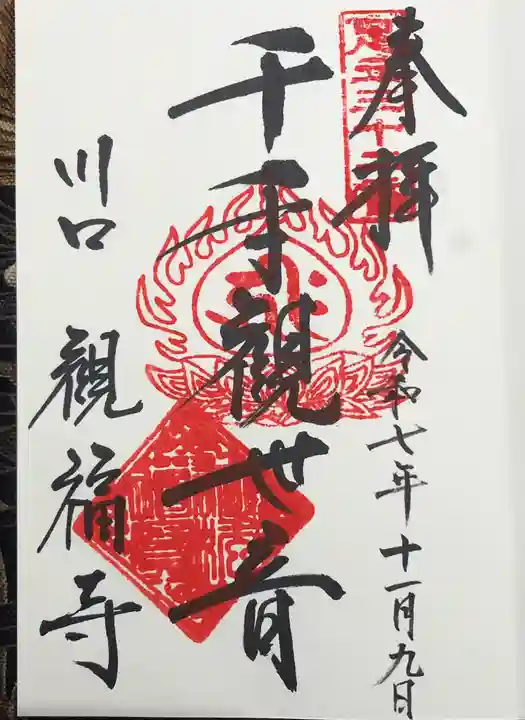 奉拝
令和七年十一月九日
千手観世音
川口 観福寺